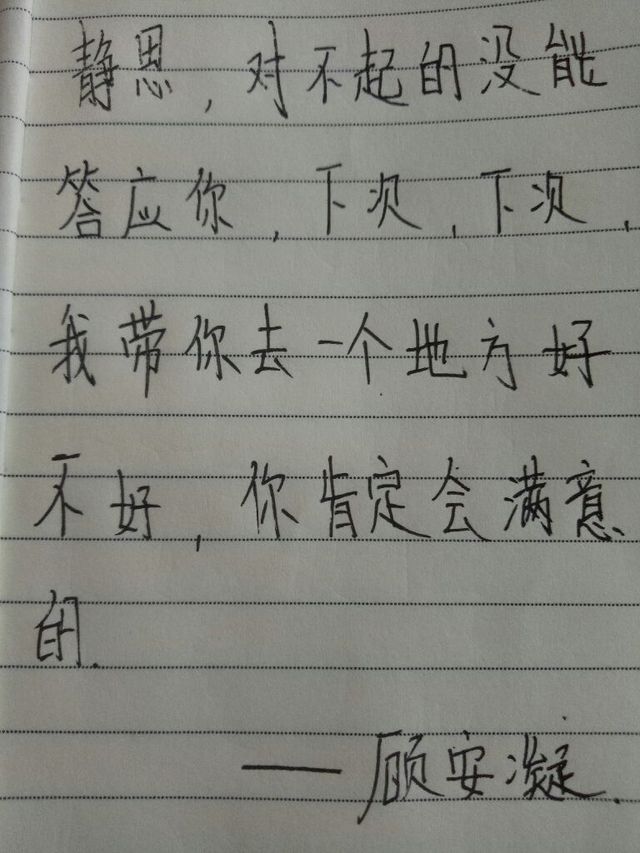 静思，对不起的没能
答应你，下次，下次，
我带你去一个地方好
不好，你肯定会满意
的.
——顾安凝.